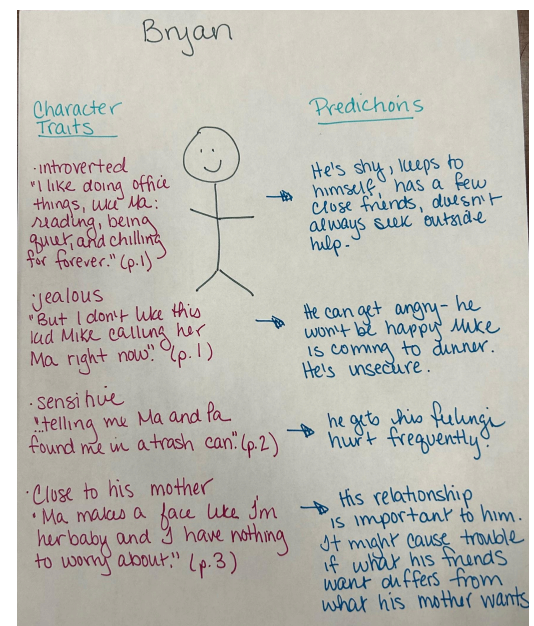 Bryan
Character
Traits
· introverted
"I like doing office
things, like Ma:
reading, being
quiet, and chilling
for forever." (p.1)
· jealous
"But I don't like this
kid Mike calling her
Ma right now." (p. 1)
· sensitive
"...telling me Ma and Pa
found me in a trash can." (p.2)
· Close to his mother
"Ma makes a face like I'm
her baby and I have nothing
to worry about." (p.3)
Predictions
He's shy, keeps to
himself, has a few
close friends, doesn't
always seek outside
help.
He can get angry - he
won't be happy Mike
is coming to dinner.
He's insecure.
he gets his feelings
hurt frequently.
His relationship
is important to him.
It might cause trouble
if what his friends
want differs from
what his mother wants